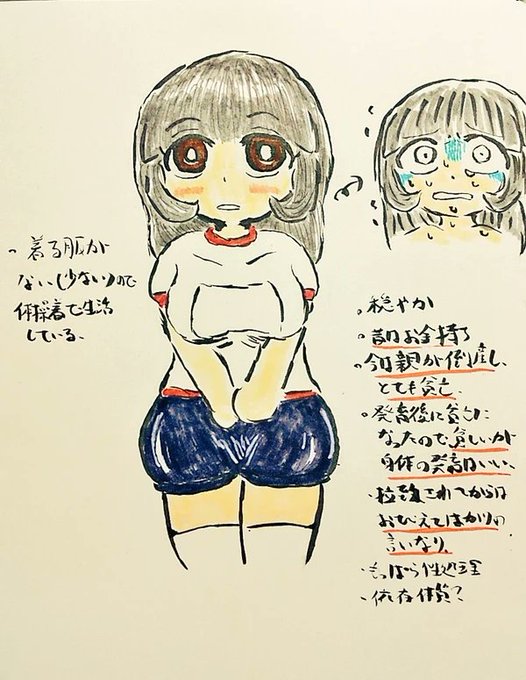 ・着る服が
ない(少ない)ので
体操着で生活
している、
・穏やか
・昔はお金持ち
・今は親が倒産し、
とても貧乏、
・発育後に貧乏に
なったので貧しいが
身体の発育はいい、
・拉致されてからは
おびえてばかりの
言いなり、
・もっぱら性処理
・依存体質？